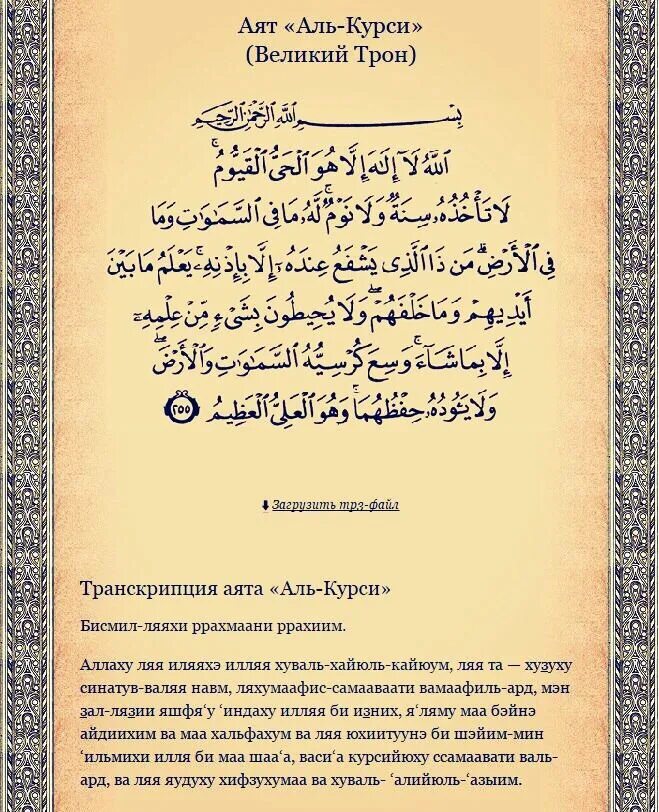 Аят «Аль-Курси»
(Великий Трон)
بِسْمِ ٱللَّهِ ٱلرَّحْمَٰنِ ٱلرَّحِيمِ
ٱللَّهُ لَآ إِلَٰهَ إِلَّا هُوَ ٱلْحَىُّ ٱلْقَيُّومُ ۚ
لَا تَأْخُذُهُۥ سِنَةٌ وَلَا نَوْمٌ ۚ لَّهُۥ مَا فِى ٱلسَّمَٰوَٰتِ وَمَا
فِى ٱلْأَرْضِ ۗ مَن ذَا ٱلَّذِى يَشْفَعُ عِندَهُۥٓ إِلَّا بِإِذْنِهِۦ ۚ يَعْلَمُ مَا بَيْنَ
أَيْدِيهِمْ وَمَا خَلْفَهُمْ ۖ وَلَا يُحِيطُونَ بِشَىْءٍ مِّنْ عِلْمِهِۦٓ
إِلَّا بِمَا شَآءَ ۚ وَسِعَ كُرْسِيُّهُ ٱلسَّمَٰوَٰتِ وَٱلْأَرْضَ ۖ
وَلَا يَـُٔودُهُۥ حِفْظُهُمَا ۚ وَهُوَ ٱلْعَلِىُّ ٱلْعَظِيمُ ٢٥٥
Загрузить mp3-файл
Транскрипция аята «Аль-Курси»
Бисмил-ляяхи ррахмаани ррахиим.
Аллаху ляя иляяхэ илляя хуваль-хайюль-кайюум, ляя та — хузуху
синатув-валяя навм, ляхумаафис-самааваати вамаафиль-ард, мэн
зал-лязии яшфя‘у ‘индаху илляя би изних, я‘ляму маа бэйнэ
айдиихим ва маа хальфахум ва ляя юхиитуунэ би шэйим-мин
‘ильмихи илля би маа шаа‘а, васи‘а курсийюху ссамаавати валь-
ард, ва ляя яудуху хифзухумаа ва хуваль- ‘алийюль-‘азыим.